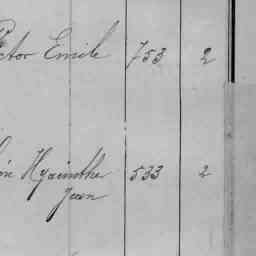 ctor Emile 753 2
on Hyacinthe 533 2
Jean